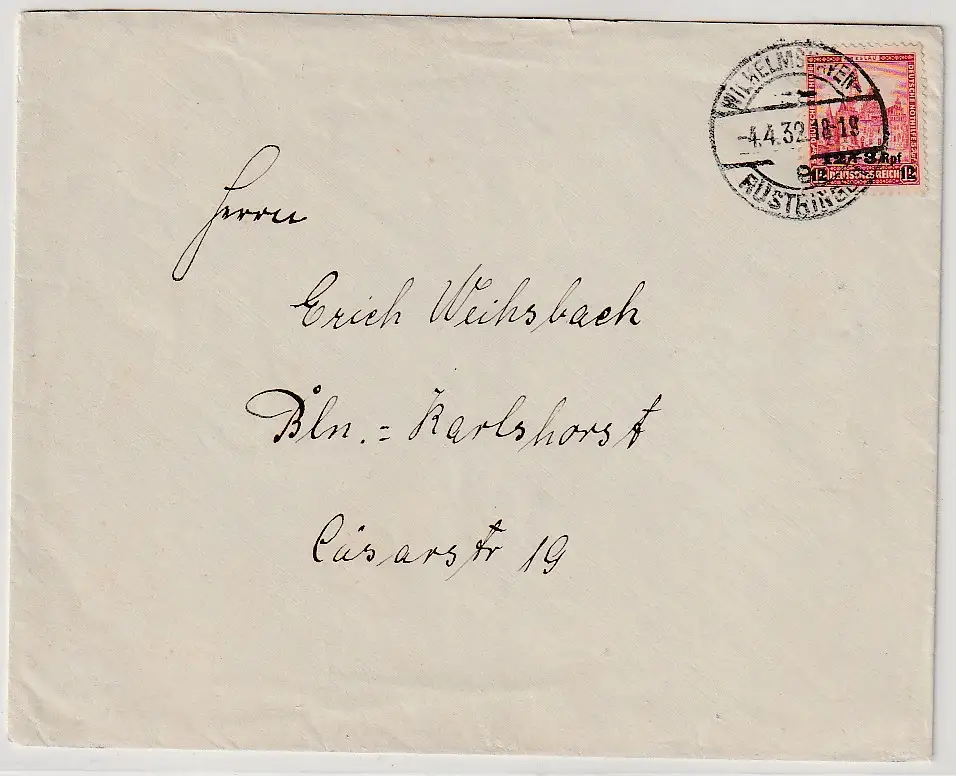 WILHELMSHAVEN-
-4.4.32.18-19
RÜSTRINGEN
DEUTSCHE NOTHILFE
12+3 Rpf
12 DEUTSCHES REICH 12
Herrn
Erich Weihsbach
Bln.= Karlshorst
Cäsarstr 19